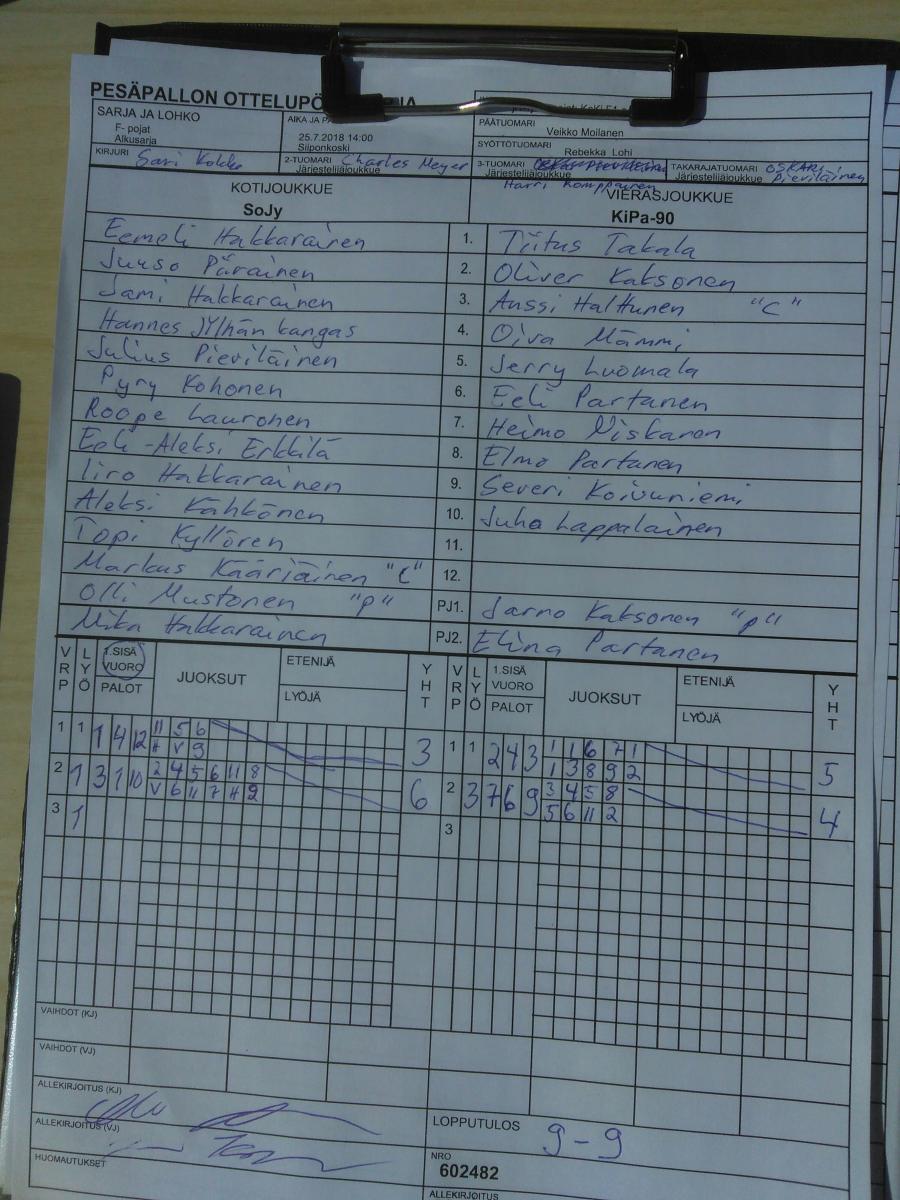 PESÄPALLON OTTELUPÖ
SARJA JA LOHKO
F- pojat
Alkusarja
AIKA JA
25.7.2018 14:00
Siiponkoski
PÄÄTUOMARI
Veikko Moilanen
SYÖTTÖTUOMARI
Rebekka Lohi
KIRJURI Sari Kokko
2-TUOMARI Charles Meyer
Järjestelijäjoukkue
3-TUOMARI
Järjestelijäjoukkue
Harri Komppainen
TAKARAJATUOMARI OSKARI
Järjestelijäjoukkue Pieviläinen
KOTIJOUKKUE VIERASJOUKKUE
SoJy KiPa-90
Eemeli Hakkarainen 1. Tiitus Takala
Juuso Pärainen 2. Oliver Kaksonen
Sami Hakkarainen 3. Anssi Halttunen "C"
Hannes Jylhänkangas 4. Oiva Mämmi
Julius Pieviläinen 5. Jerry Luomala
Pyry Kohonen 6. Eeli Partanen
Roope Lauronen 7. Heimo Niskanen
Eeli-Aleksi Erkkilä 8. Elmo Partanen
Iiro Hakkarainen 9. Severi Koivuniemi
Aleksi Kähkönen 10. Juho Lappalainen
Topi Kyllönen 11.
Markus Kääriäinen "C" 12.
Olli Mustonen "P" PJ1. Jarno Kaksonen "P"
Mika Hakkarainen PJ2. Elina Partanen
VRP LYÖ 1.SISÄ VUORO PALOT JUOKSUT ETENIJÄ LYÖJÄ YHT VRP LYÖ 1.SISÄ VUORO PALOT JUOKSUT ETENIJÄ LYÖJÄ YHT
1 1 1 4 12 11 5 6 3 1 1 2 4 3 1 1 6 7 1 5
H V 9 1 3 8 9 2
2 1 3 1 10 2 4 5 6 11 8 6 2 3 7 6 9 3 4 5 8 4
V 6 11 7 H 9 5 6 11 2
3 1 3
VAIHDOT (KJ)
VAIHDOT (VJ)
ALLEKIRJOITUS (KJ)
ALLEKIRJOITUS (VJ)
LOPPUTULOS 9-9
HUOMAUTUKSET
NRO
602482
ALLEKIRJOITUS